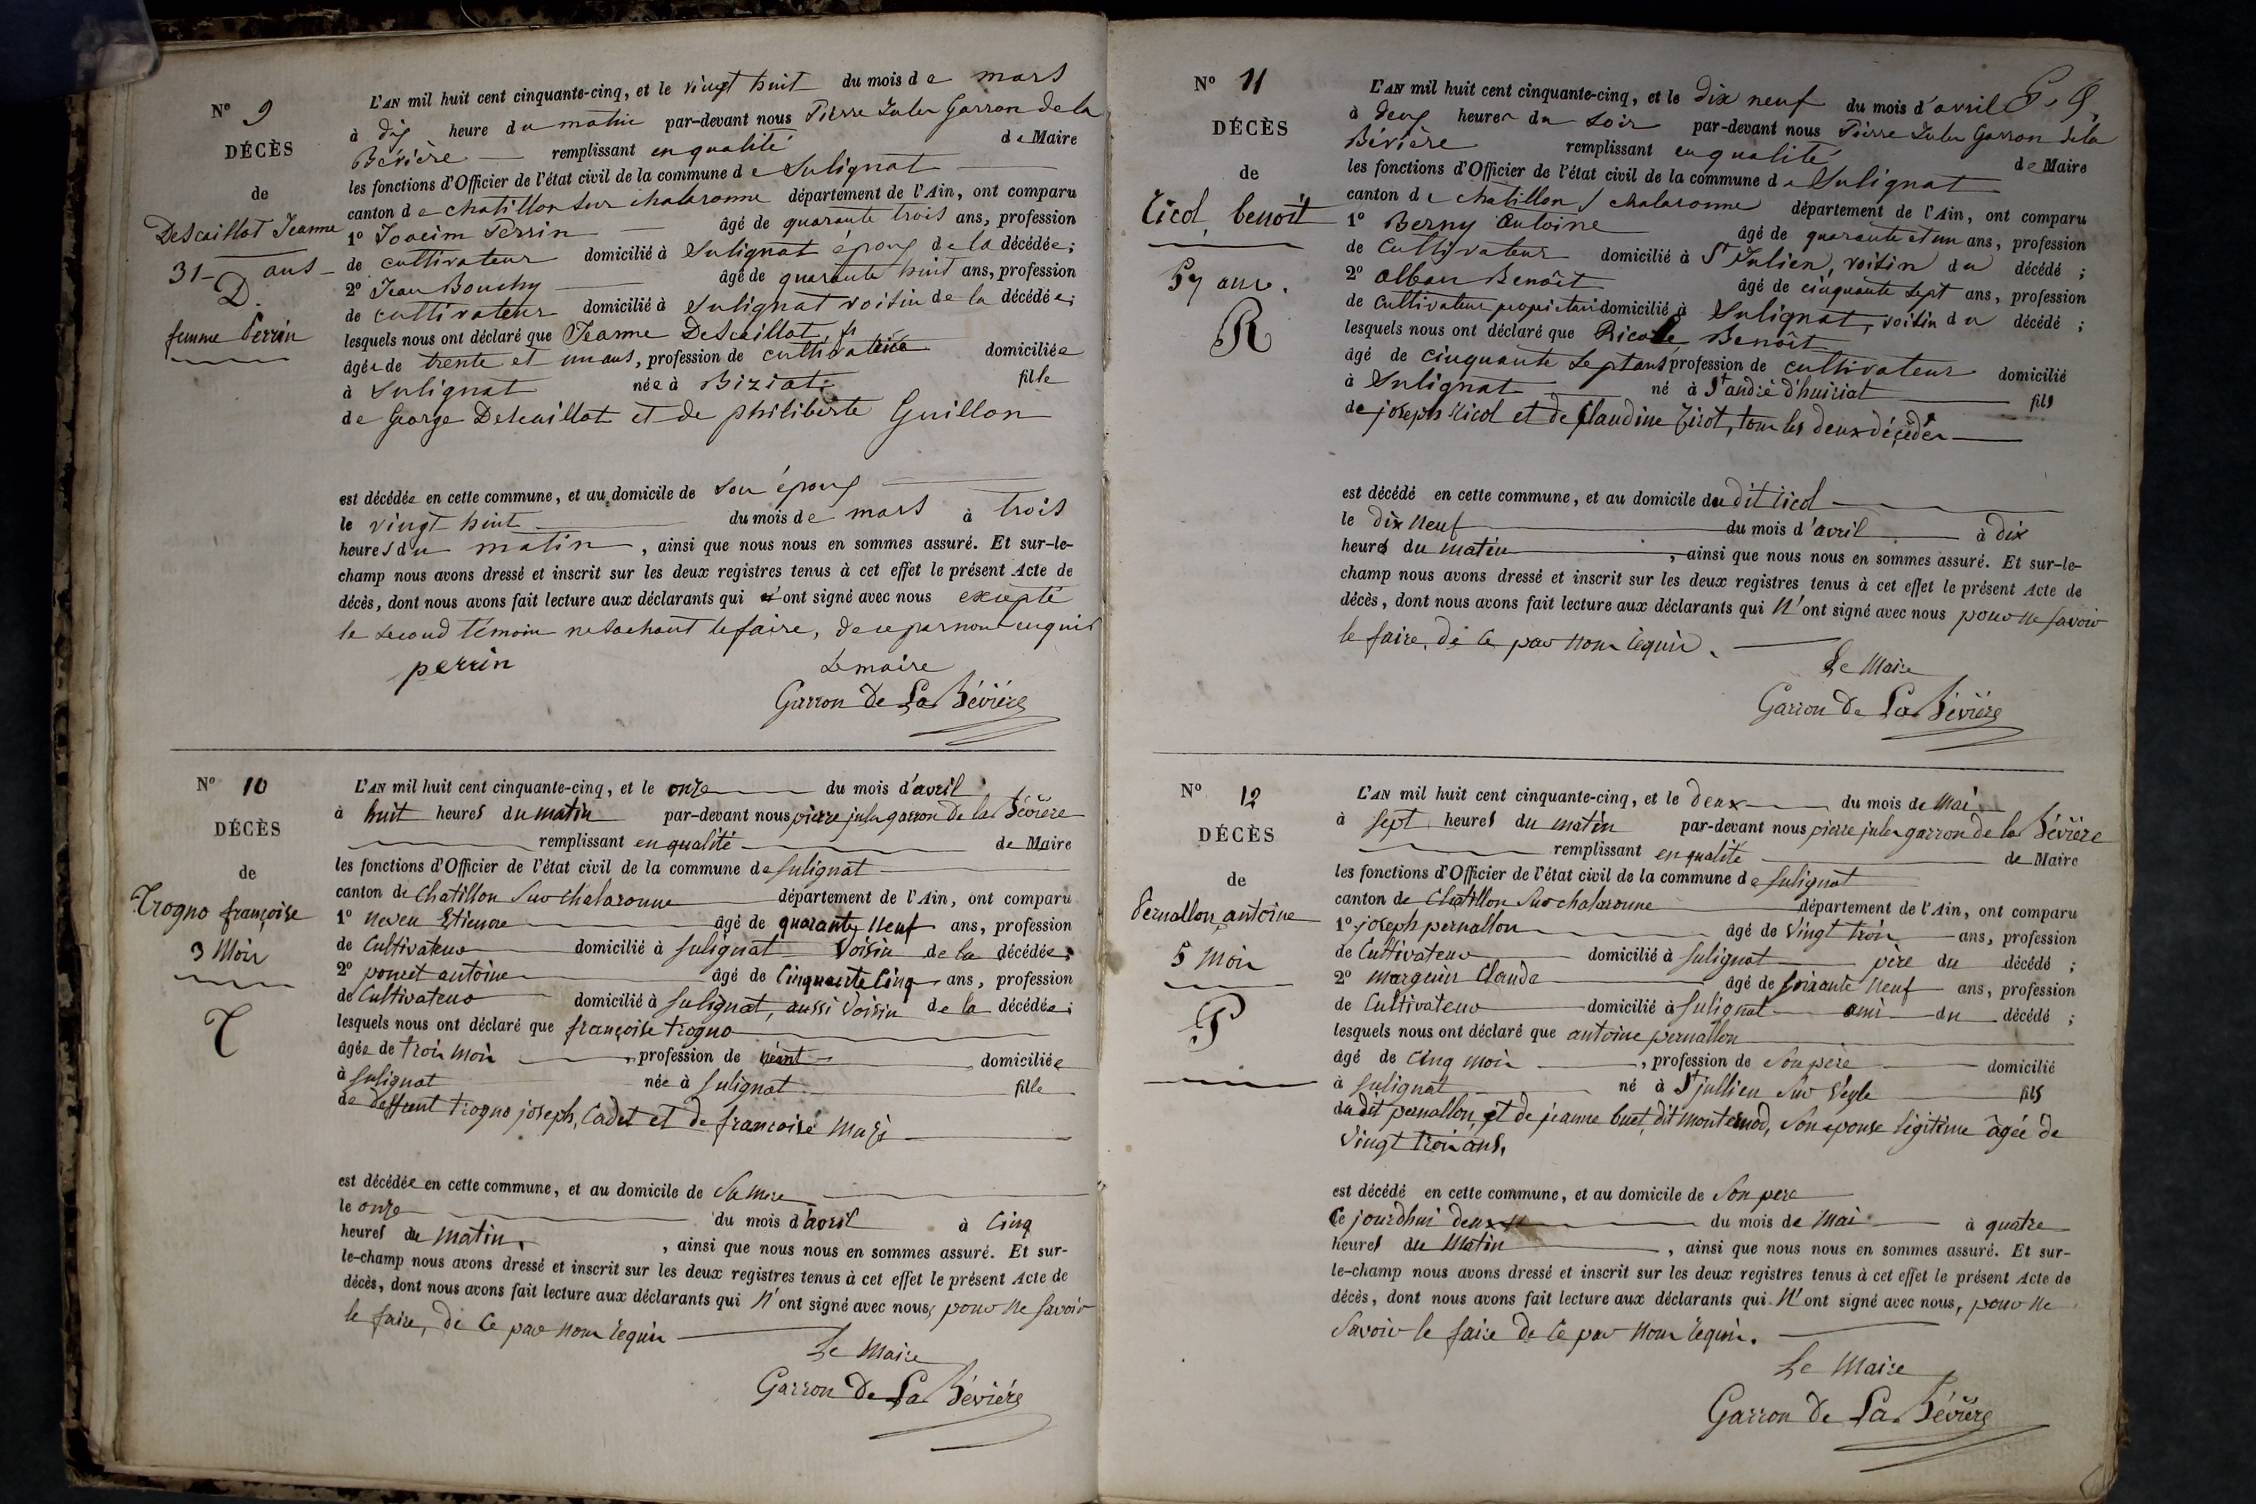 N° 9
DÉCÈS
de
Descaillot Jeanne
31 ans
D.
femme Perrin
L'AN mil huit cent cinquante-cinq, et le vingt huit du mois de mars
à dix heure du matin par-devant nous Pierre Jules Garron de la
Bévière remplissant en qualité de Maire
les fonctions d'Officier de l'état civil de la commune de Sulignat
canton de chatillon sur chalaronne département de l'Ain, ont comparu
1° Joacim Perrin âgé de quarante trois ans, profession
de cultivateur domicilié à Sulignat époux de la décédée;
2° Jean Bouchy âgé de quarante huit ans, profession
de cultivateur domicilié à Sulignat voisin de la décédée;
lesquels nous ont déclaré que Jeanne Descaillot
âgée de trente et un ans, profession de cultivatrice domiciliée
à Sulignat née à Biziat fille
de George Descaillot et de philiberte Guillon
est décédée en cette commune, et au domicile de son époux
le vingt huit du mois de mars à trois
heures du matin, ainsi que nous nous en sommes assuré. Et sur-le-
champ nous avons dressé et inscrit sur les deux registres tenus à cet effet le présent Acte de
décès, dont nous avons fait lecture aux déclarants qui ont signé avec nous excepté
le second témoin ne sachant le faire, de ce par nous enquis
perrin Le maire
Garron De La Bévière
N° 10
DÉCÈS
de
Trogno françoise
3 Mois
T
L'AN mil huit cent cinquante-cinq, et le onze du mois d'avril
à huit heures du matin par-devant nous pierre jules garron de la Bévière
remplissant en qualité de Maire
les fonctions d'Officier de l'état civil de la commune de Sulignat
canton de Chatillon Sur Chalaronne département de l'Ain, ont comparu
1° neveu Etienne âgé de quarante Neuf ans, profession
de Cultivateur domicilié à Sulignat Voisin de la décédée;
2° poncet antoine âgé de Cinquante Cinq ans, profession
de Cultivateur domicilié à Sulignat, aussi Voisin de la décédée;
lesquels nous ont déclaré que françoise trogno
âgée de trois mois, profession de néant domiciliée
à Sulignat née à Sulignat fille
de deffunt trogno joseph, Cadet et de françoise
est décédée en cette commune, et au domicile de Sa Mere
le onze du mois d'avril à Cinq
heures du matin, ainsi que nous nous en sommes assuré. Et sur-
le-champ nous avons dressé et inscrit sur les deux registres tenus à cet effet le présent Acte de
décès, dont nous avons fait lecture aux déclarants qui N'ont signé avec nous, pour ne savoir
le faire, de Ce par nous requis
Le Maire
Garron De La Bévière
N° 11
DÉCÈS
de
Ricol benoit
57 ans.
R
L'AN mil huit cent cinquante-cinq, et le dix neuf du mois d'avril
à deux heures du soir par-devant nous Pierre Jules Garron de la
Bévière remplissant en qualité de Maire
les fonctions d'Officier de l'état civil de la commune de Sulignat
canton de chatillon s/ chalaronne département de l'Ain, ont comparu
1° Berny Antoine âgé de quarante et un ans, profession
de Cultivateur domicilié à St Julien, voisin du décédé;
2° alban Benoît âgé de cinquante sept ans, profession
de Cultivateur propriétaire domicilié à Sulignat, voisin du décédé;
lesquels nous ont déclaré que Ricole Benoît
âgé de cinquante sept ans profession de cultivateur domicilié
à Sulignat né à St andré d'huiriat fils
de joseph ricol et de Claudine, tous les deux décédés
est décédé en cette commune, et au domicile du dit ricol
le dix Neuf du mois d'avril à dix
heures du matin, ainsi que nous nous en sommes assuré. Et sur-le-
champ nous avons dressé et inscrit sur les deux registres tenus à cet effet le présent Acte de
décès, dont nous avons fait lecture aux déclarants qui N'ont signé avec nous pour ne savoir
le faire, de Ce par nous requis.
Le Maire
Garron De La Bévière
N° 12
DÉCÈS
de
Pernallon antoine
5 Mois
P
L'AN mil huit cent cinquante-cinq, et le deux du mois de Mai
à Sept heures du matin par-devant nous pierre jules garron de la Bévière
remplissant en qualité de Maire
les fonctions d'Officier de l'état civil de la commune de Sulignat
canton de Chatillon Sur chalaronne département de l'Ain, ont comparu
1° joseph pernallon âgé de Vingt trois ans, profession
de Cultivateur domicilié à Sulignat père du décédé;
2° marguin Claude âgé de Soixante Neuf ans, profession
de Cultivateur domicilié à Sulignat ami du décédé;
lesquels nous ont déclaré que antoine pernallon
âgé de Cinq mois, profession de Son père domicilié
à Sulignat né à St jullien Sur Veyle fils
du dit pernallon, et de jeanne buet, dit, Son epouse légitime âgée de
Vingt trois ans,
est décédé en cette commune, et au domicile de Son pere
Ce jourdhui deux du mois de Mai à quatre
heures du Matin, ainsi que nous nous en sommes assuré. Et sur-
le-champ nous avons dressé et inscrit sur les deux registres tenus à cet effet le présent Acte de
décès, dont nous avons fait lecture aux déclarants qui N'ont signé avec nous, pour ne
Savoir le faire de Ce par nous requis.
Le Maire
Garron De La Bévière